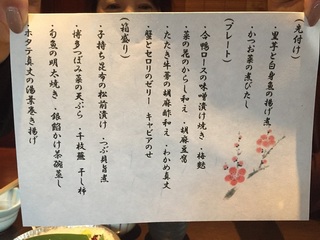 (先付け)
・黒芋と白身魚の揚げ煮
・かつお菜の煮びたし
(プレート)
・合鴨ロースの味噌漬け焼き ・梅麩
・菜の花のからし和え ・胡麻豆富
・たたき牛蒡の胡麻酢和え ・わかめ真丈
・蟹とセロリのゼリー キャビアのせ
(箱盛り)
・子持ち昆布の松前漬け ・つぶ貝旨煮
・博多つぼみ菜の天ぷら ・千枚蕪 ・干し柿
・旬魚の明太焼き ・銀餡かけ茶碗蒸し
ホタテ真丈の湯葉巻き揚げ